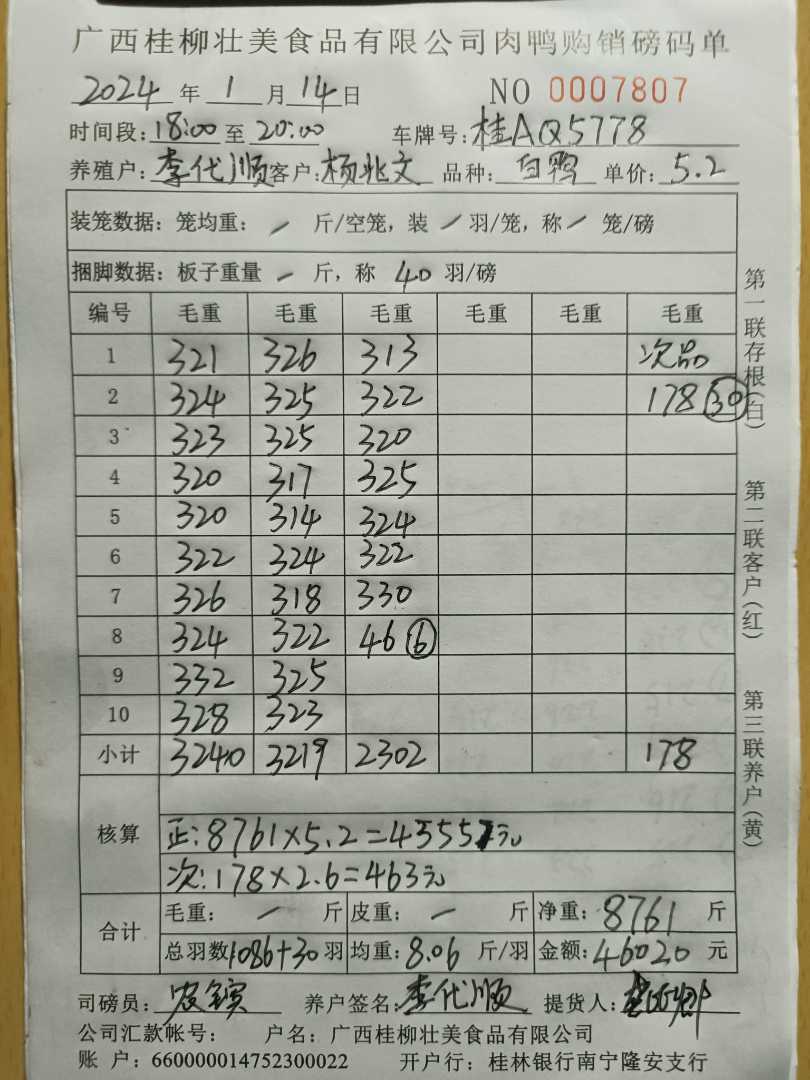 广西桂柳壮美食品有限公司肉鸭购销磅码单
2024 年 1 月 14 日 NO 0007807
时间段: 18:00 至 20:00 车牌号: 桂AQ5778
养殖户: 李代顺 客户: 杨兆文 品种: 白鸭 单价: 5.2
装笼数据: 笼均重: / 斤/空笼, 装 / 羽/笼, 称 / 笼/磅
捆脚数据: 板子重量 / 斤, 称 40 羽/磅
编号 毛重 毛重 毛重 毛重 毛重 毛重
1 321 326 313 次品
2 324 325 322 178 30
3 323 325 320
4 320 317 325
5 320 314 324
6 322 324 322
7 326 318 330
8 324 322 46 6
9 332 325
10 328 323
小计 3240 3219 2302 178
核算
正: 8761×5.2=45557元
次: 178×2.6=463元
合计
毛重: / 斤 皮重: / 斤 净重: 8761 斤
总羽数 1086+30 羽 均重: 8.06 斤/羽 金额: 46020 元
司磅员: 养户签名: 李代顺 提货人:
公司汇款帐号: 户名: 广西桂柳壮美食品有限公司
账 户: 660000014752300022 开户行: 桂林银行南宁隆安支行
第一联存根(白)
第二联客户(红)
第三联养户(黄)